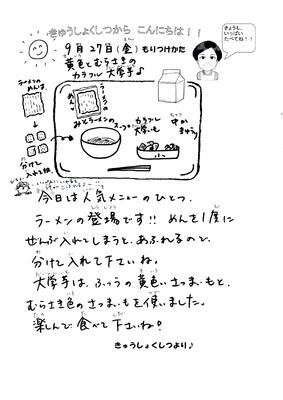 きゅうしょくしつから こんにちは!!
きょうも、
いっぱい
たべてね!!
9月27日(金)もりつけかた
黄色とむらさきの
カラフル大学芋♪
ラーメンの
めんは、
分けて
入れてね。
ラーメンの
めん
みそラーメンの
スープ
カラフル
大学いも
牛にゅう
今日は人気メニューのひとつ、
ラーメンの登場です!! めんを1度に
ぜんぶ入れてしまうと、あふれるので、
分けて入れて下さいね。
大学芋は、ふつうの黄色いさつまいもと、
むらさき色のさつまいもを使いました。
楽しんで食べて下さいね!
きゅうしょくしつより♪